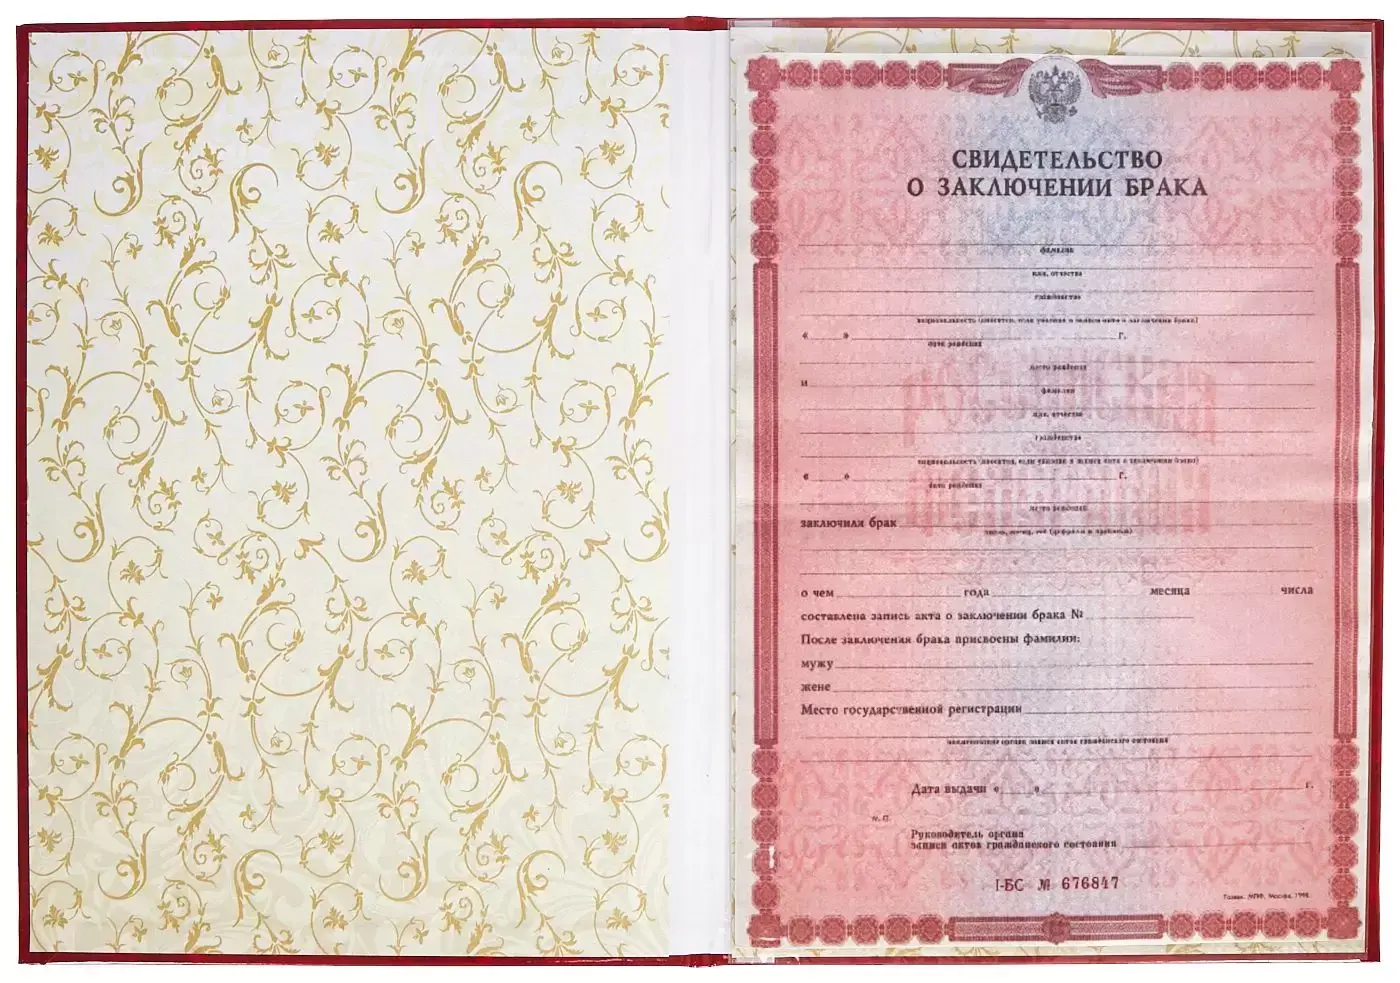 СВИДЕТЕЛЬСТВО
О ЗАКЛЮЧЕНИИ БРАКА
фамилия
имя, отчество
гражданство
национальность (вносится, если указана в записи акта о заключении брака)
« » г.
дата рождения
место рождения
и
фамилия
имя, отчество
гражданство
национальность (вносится, если указана в записи акта о заключении брака)
« » г.
дата рождения
место рождения
заключили брак
число, месяц, год (цифрами и прописью)
о чем года месяца числа
составлена запись акта о заключении брака №
После заключения брака присвоены фамилии:
мужу
жене
Место государственной регистрации
наименование органа записи актов гражданского состояния
Дата выдачи « » г.
М.П.
Руководитель органа
записи актов гражданского состояния
I-БС № 676847
Гознак. МПФ. Москва. 1998.